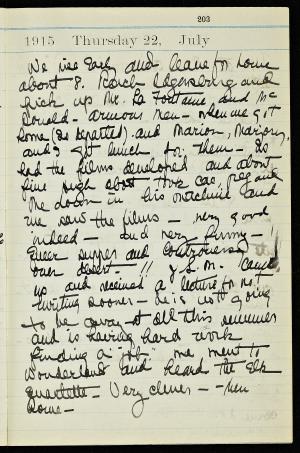 203
1915 Thursday 22, July
We rise Early and leave for home
about 8. Reach Ogdensburg and
pick up Mr. La Fontaine, and Mc
Donald - armours men - when we got
home (So departed) and Marion, Marjory,
and I got lunch for them -
had the films developed and about
five Hugh and
me down in his machine and
we saw the films - very good
indeed - and very funny -
Queer supper and controversy
over desert - !! Y. S. M. Came
up and received a lecture for not
writing sooner - he is not going
to be away at all this summer
and is having hard work
finding a "job" we went to
Wonderland and heard the Elk
quartette - Very clever - then
home -